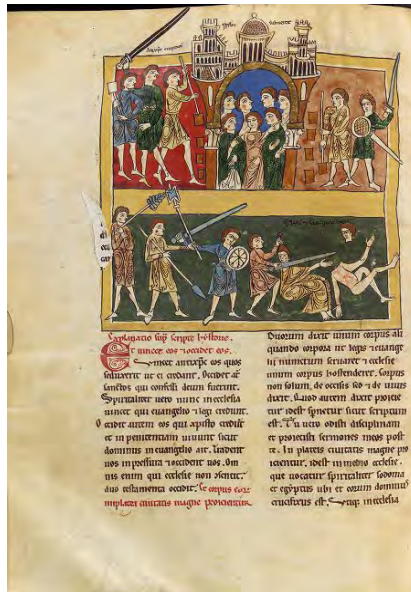 Explanatio sup scripte hystorie.
Et uincet eos ⁊ occidet eos.
Uincet eos quos
seduxerit ut ei credant. Occidet
sanctos qui confessi deum fuerint.
Spiritaliter uero nunc in ecclesia
uincet qui euangelio ⁊ legi credunt.
Occidit autem eos qui xpisto
et in penitenciam uiuunt sicut
dominus in euangelio ait. Tradent
uos in pressura ⁊ occident uos. Om
nis enim qui ecclesie non
duo testamenta occidit. Et corpus
ciuitatis magne
Duorum dixit unum corpus ali
quando corpora ut legis ⁊ euange
lii numerum seruaret ⁊ ecclesie
unum corpus hostenderet. Corpus
non solum de occisis sed ⁊ de uiuis
dixit. Quod autem dixit proicie
tur idest spnetur sicut scriptum
est. Tu uero odisti disciplinam
et proiecisti sermones meos post
te. In plateis ciuitatis magne pro
icientur. idest in medio ecclesie.
que uocatur spiritaliter sodoma
et egyptus ubi et eorum dominus
crucifixus est. in ecclesia